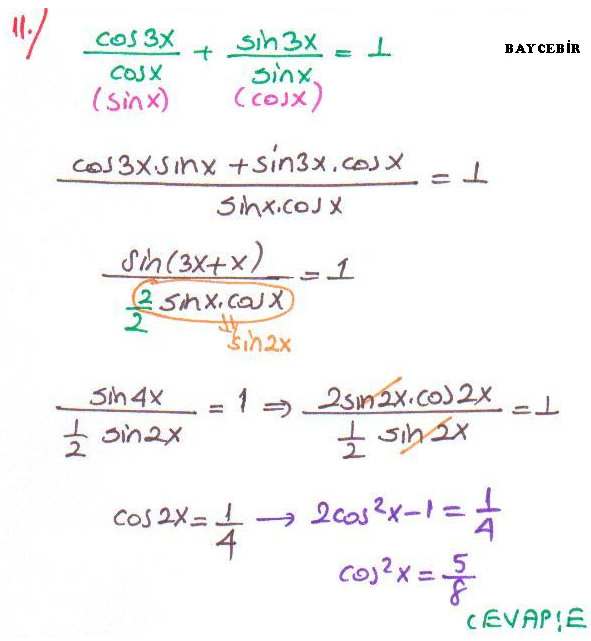 11./ cos3x/cosx + sin3x/sinx = 1 BAYCEBİR
(sinx) (cosx)
(cos3x.sinx + sin3x.cosx)/(sinx.cosx) = 1
sin(3x+x)/(2/2 sinx.cosx) = 1
⇓ sin2x
sin4x/(1/2 sin2x) = 1 ⇒ (2sin2x.cos2x)/(1/2 sin2x) = 1
cos2x = 1/4 → 2cos²x-1 = 1/4
cos²x = 5/8
CEVAP:E